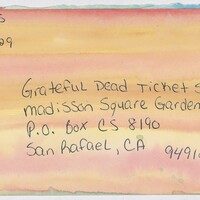 s
29
Grateful Dead Ticket S
Madisson Square Garden
P.O. Box CS 8190
San Rafael, CA 9491